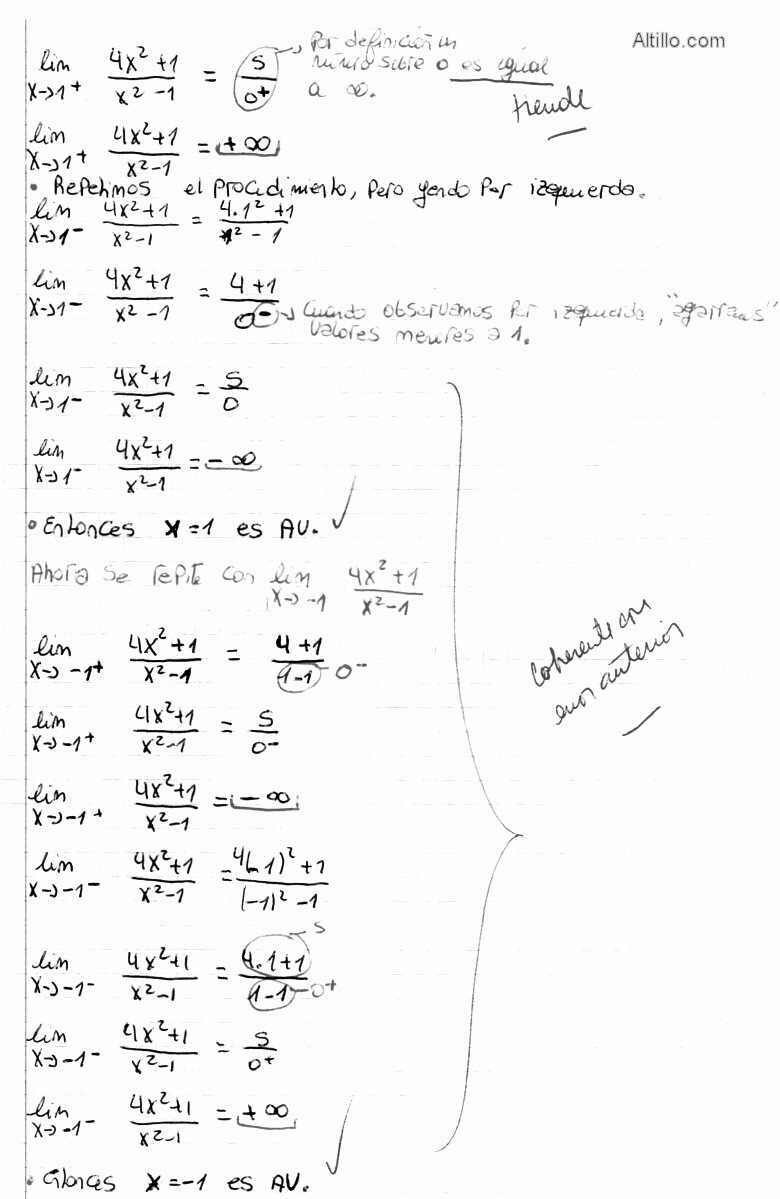 Altillo.com
lim x→1⁺ (4x² + 1)/(x² - 1) = 5/0⁺ → Por definición un
número sobre 0 es igual
a ∞.
tiende
lim x→1⁺ (4x² + 1)/(x² - 1) = + ∞
• Repetimos el procidimiento, pero yendo por izquerda.
lim x→1⁻ (4x² + 1)/(x² - 1) = (4.1² + 1)/(1² - 1)
lim x→1⁻ (4x² + 1)/(x² - 1) = (4 + 1)/0⁻ → Cuando observamos por izquerda, "agarras"
valores menores a 1.
lim x→1⁻ (4x² + 1)/(x² - 1) = 5/0
lim x→1⁻ (4x² + 1)/(x² - 1) = - ∞
• Entonces x = 1 es AV. ✓
Ahora se repite con lim x→-1 (4x² + 1)/(x² - 1)
lim x→-1⁺ (4x² + 1)/(x² - 1) = (4 + 1)/(1 - 1) 0⁻
coherente con
error anterior
lim x→-1⁺ (4x² + 1)/(x² - 1) = 5/0⁻
lim x→-1⁺ (4x² + 1)/(x² - 1) = - ∞
lim x→-1⁻ (4x² + 1)/(x² - 1) = (4(-1)² + 1)/((-1)² - 1)
lim x→-1⁻ (4x² + 1)/(x² - 1) = (4.1 + 1)/(1 - 1) 5 0⁺
lim x→-1⁻ (4x² + 1)/(x² - 1) = 5/0⁺
lim x→-1⁻ (4x² + 1)/(x² - 1) = + ∞
• x = -1 es AV. ✓